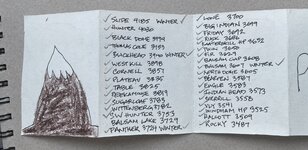 ✓ SLIDE 4185 WINTER ✓
✓ HUNTER 4030
✓ BLACK DOME 3994
✓ THOMAS COLE 3953
✓ BLACKHEAD 3940 WINTER ✓
✓ WEST KILL 3898
✓ CORNELL 3857
✓ PLATEAU 3835
✓ TABLE 3825
✓ PEEKAMOOSE 3819
✓ SUGARLOAF 3783
✓ WITTENBERG 3782
✓ SW HUNTER 3753
✓ BALSAM LAKE 3729
✓ PANTHER 3724 WINTER ✓
✓ LONE 3700
✓ BIG INDIAN 3699
✓ FRIDAY 3692
✓ RUSK 3686
✓ KAATERSKILL HP 3672
✓ TWIN 3650
✓ FIR 3629
✓ BALSAM CAP 3608
✓ BALSAM 3607 WINTER ✓
✓ NORTH DOME 3605
✓ 3589
✓ EAGLE 3583
✓ INDIAN HEAD 3573
✓ SHERRILL 3558
✓ VLY 3541
✓ WINDHAM HP 3525
✓ HALCOTT 3509
✓ ROCKY 3487